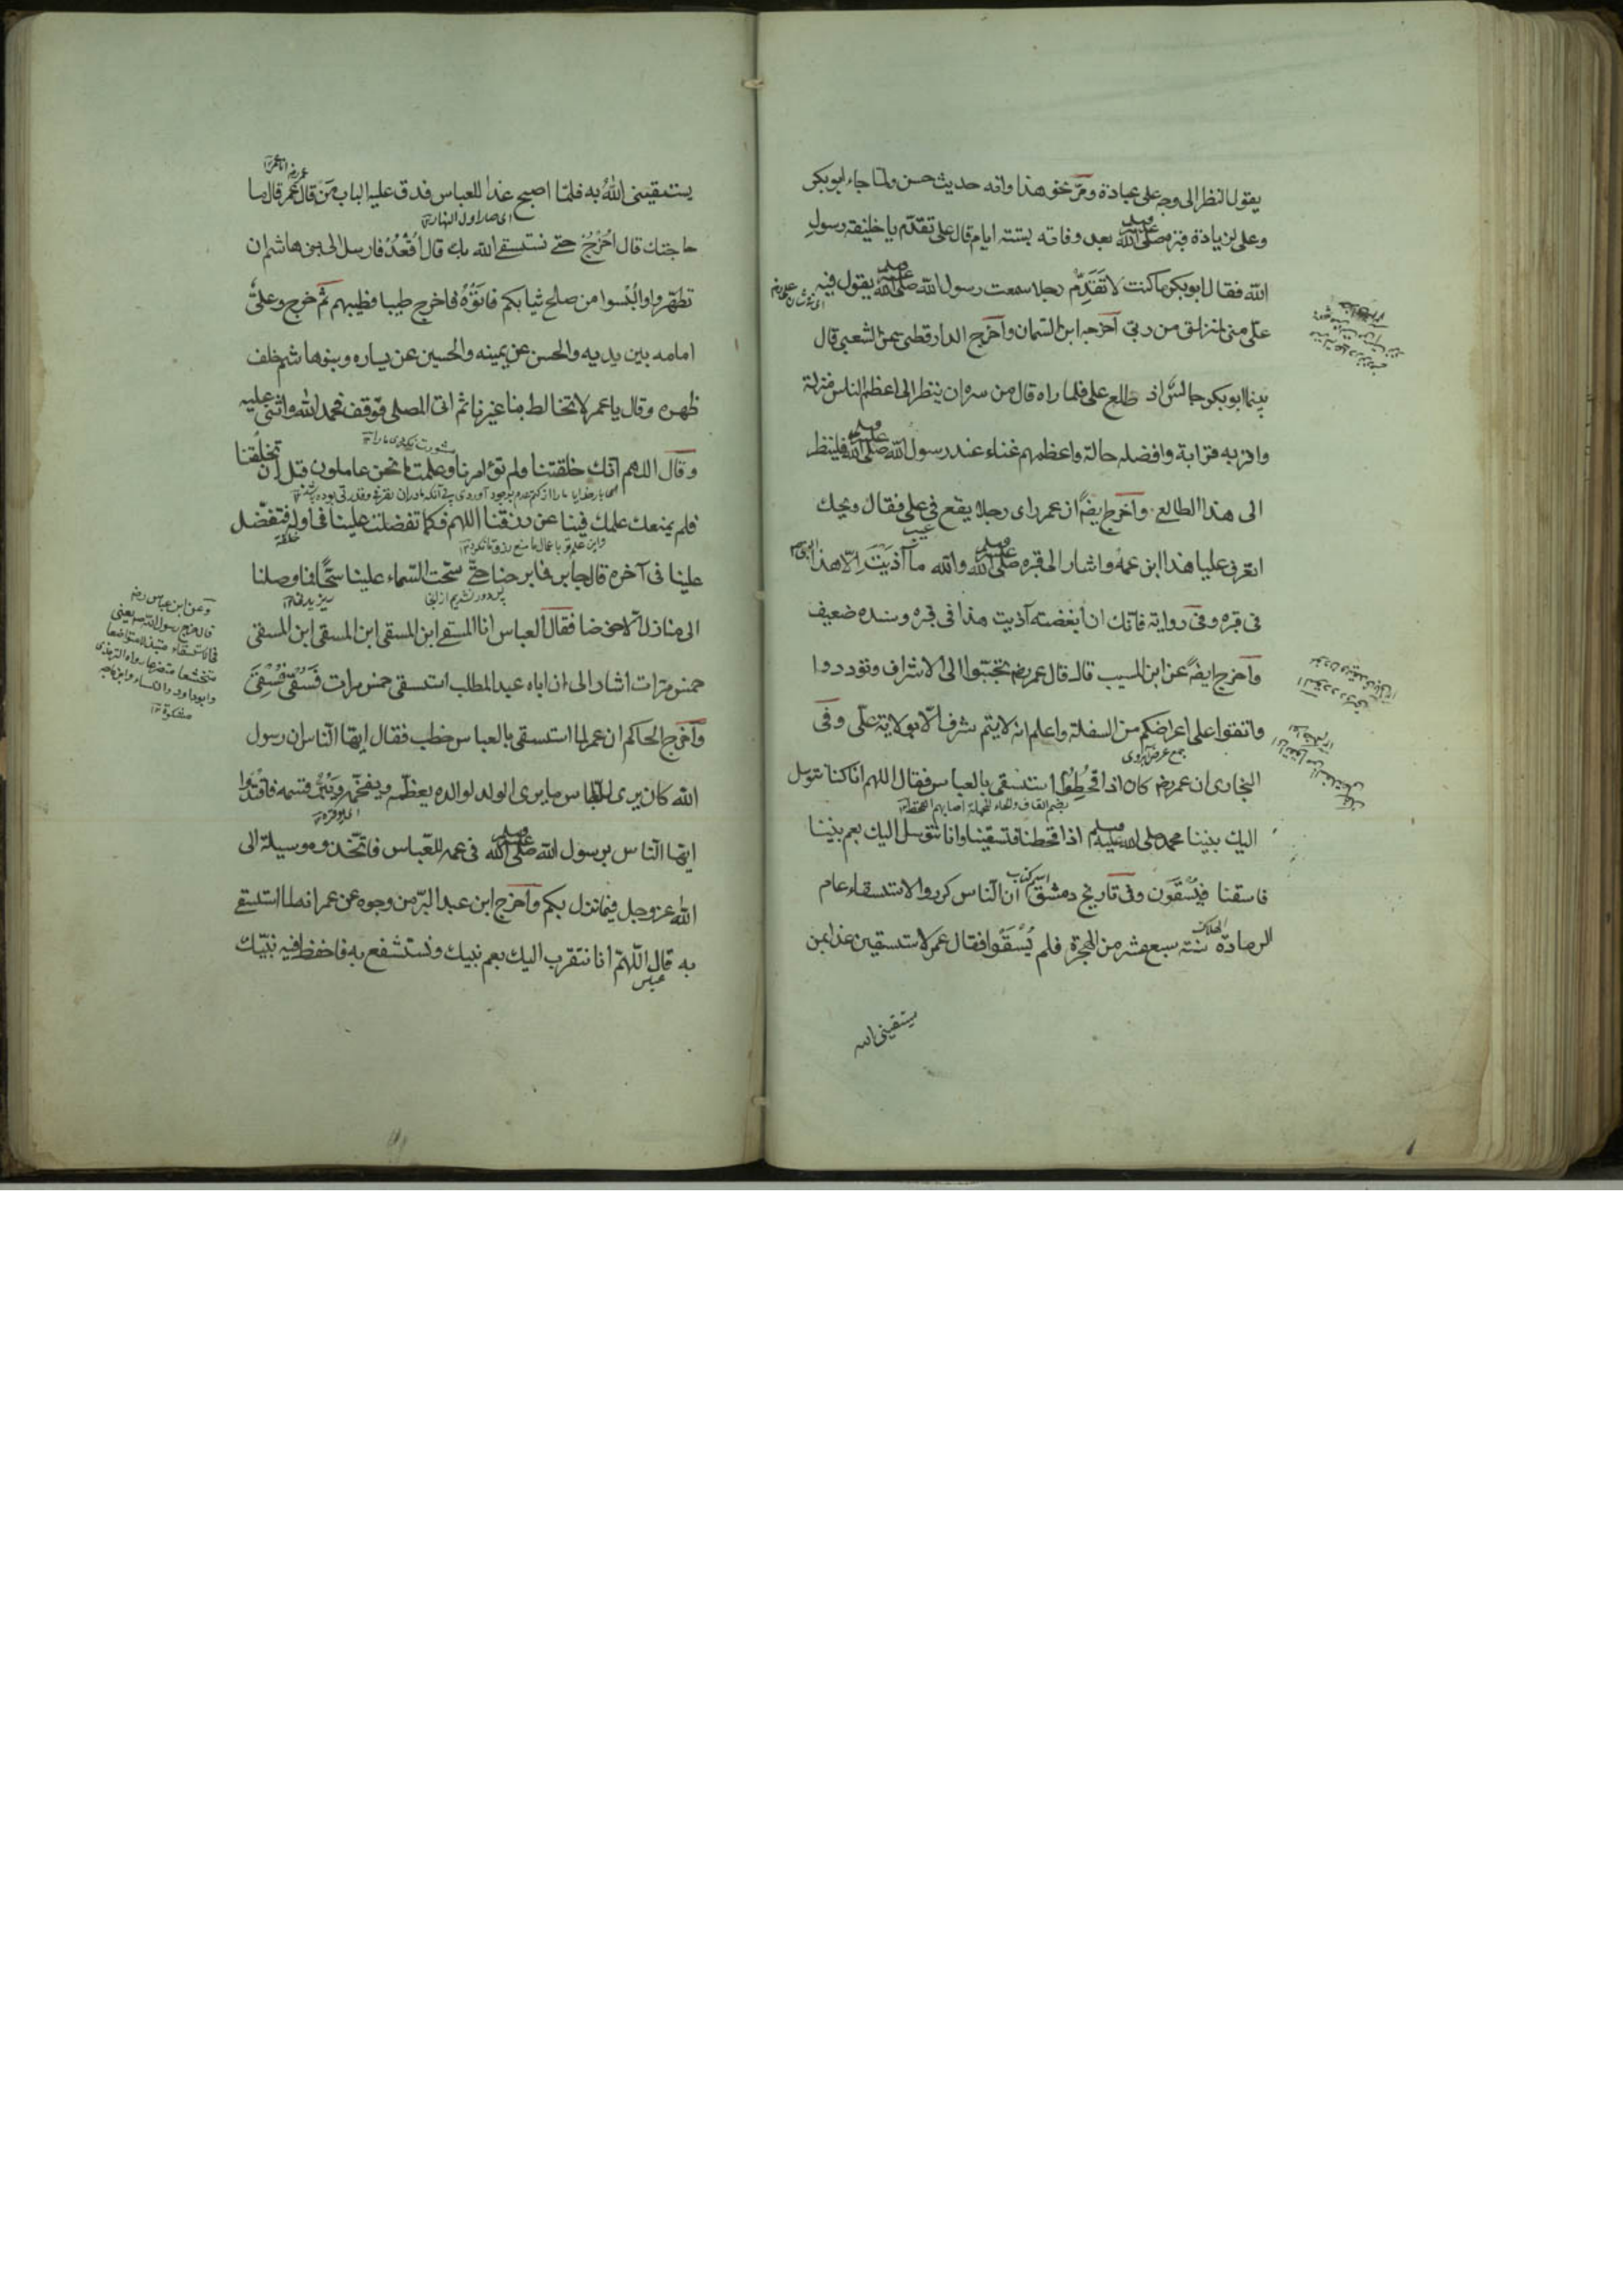 يقول النظر الى وجه على عبادة ومرّ نحو هذا وانه حديث حسن ولما جاء ابو بكر
وعلى لزيادة قبره صلى الله عليه وسلم بعد وفاته بستة ايام قال على تقدّم يا خليفة رسول
الله فقال ابو بكر ما كنت لا تَقَدّم رجلا سمعت رسول الله صلى الله عليه وسلم يقول فيه
علىّ منى لمنزلتى من ربى اخرجه ابن السمان وأخرج الدارقطنى عن الشعبى قال
بينما ابو بكر جالس اذ طلع على فلما راه قال من سره ان ينظر الى اعظم الناس منزلة
واقربه قرابة وافضله حالة واعظمهم غناء عند رسول الله صلى الله عليه وسلم فلينظر
الى هذا الطالع وأخرج ايضًا ان عمر راى رجلا يقع فى على فقال ويحك
اتعرف عليا هذا ابن عمه واشار الى قبره صلى الله عليه وسلم والله ما آذيتَ الّا هذا
فى قبره وفى رواية فانك ان ابغضته آذيت هذا فى قبره وسنده ضعيف
وأخرج ايضًا عن ابن المسيب قال قال عمر رضـ تحببّوا الى الاشراف وتوددوا
واتقوا على اعراضكم من السفلة واعلم انه لا يتم شرف الّا بولاية علىّ وفى
جمع عرض آبروى
البخارى ان عمر رضـ كان اذا قُحِطُوا استسقى بالعباس فقال اللهم انا كنا نتوسل
بضم القاف والحاء المهملة اصابهم القحط ١٢
اليك بنبينا محمد صلى الله عليه وسلم اذا قحطنا فتسقينا وانا نتوسل اليك بعم نبينا
اسم كتاب
فاسقنا فيُسْقَون وفى تاريخ دمشق ان الناس كرروا الاستسقاء عام
الهلاك
الرمادة سنة سبع عشر من الهجرة فلم يُسْقَوا فقال عمر لاستسقين غدا بمن
يستقينى الله
يستقينى اللهُ به فلمّا اصبح غدا للعباس فدق عليه الباب قال مَنْ قال عمر قال ما
اى صار اول النهار ١٢
حاجتك قال اُخْرُجْ حتى نستسقى الله بك قال اُقْعُدْ فارسل الى بنى هاشم ان
تطهروا والْبَسوا من صالح ثيابكم فاتَوْهُ فاخرج طيبا وطيبهم ثم خرج وعلىٌّ
امامه بين يديه والحسن عن يمينه والحسين عن يساره وبنو هاشم خلف
ظهره وقال يا عمر لا تخالط بنا غيرنا ثم اتى المصلى فوقف فحمد الله واثنى عليه
وقال اللهم انك خلقتنا ولم تؤامرنا وعلمت ما نحن عاملون قبل ان تخلُقنا
فلم يمنعك علمك فينا عن رزقنا اللهم فكما تفضلت علينا فى اوله فتفضّل
علينا فى آخره قال جابر فما برحنا حتى سَحّت السماء علينا سَحًّا فما وصلنا
الى منازلنا الا خوضا فقال العباس انا المسقى ابن المسقى ابن المسقى ابن المسقى
خمس مرات اشار الى ان اباه عبد المطلب استسقى خمس مرات فسُقِىَ
وأخرج الحاكم ان عمر لما استسقى بالعباس خطب فقال ايها الناس ان رسول
الله كان يرى للعباس ما يرى الولد لوالده يعظّمه ويفخّمه ويبرّ قسمه فاقتدوا
ايها الناس برسول الله صلى الله عليه وسلم فى عمه العبّاس فاتّخذوه وسيلة الى
الله عز وجل فيما نزل بكم وأخرج ابن عبد البرّ من وجوه عن عمر انه لما استسقى
به قال اللّهمّ انا نتقرب اليك بعم نبيك ونستشفع به فاحفظ فيه نبيّك
عباس
وعن ابن عباس رضـ
قال خرج رسول الله صـ يعنى
فى الاستسقاء متبذلا متواضعا
متخشعا متضرعا رواه الترمذى
وابو داود والنسائى وابن ماجه
مشكوة ١٢